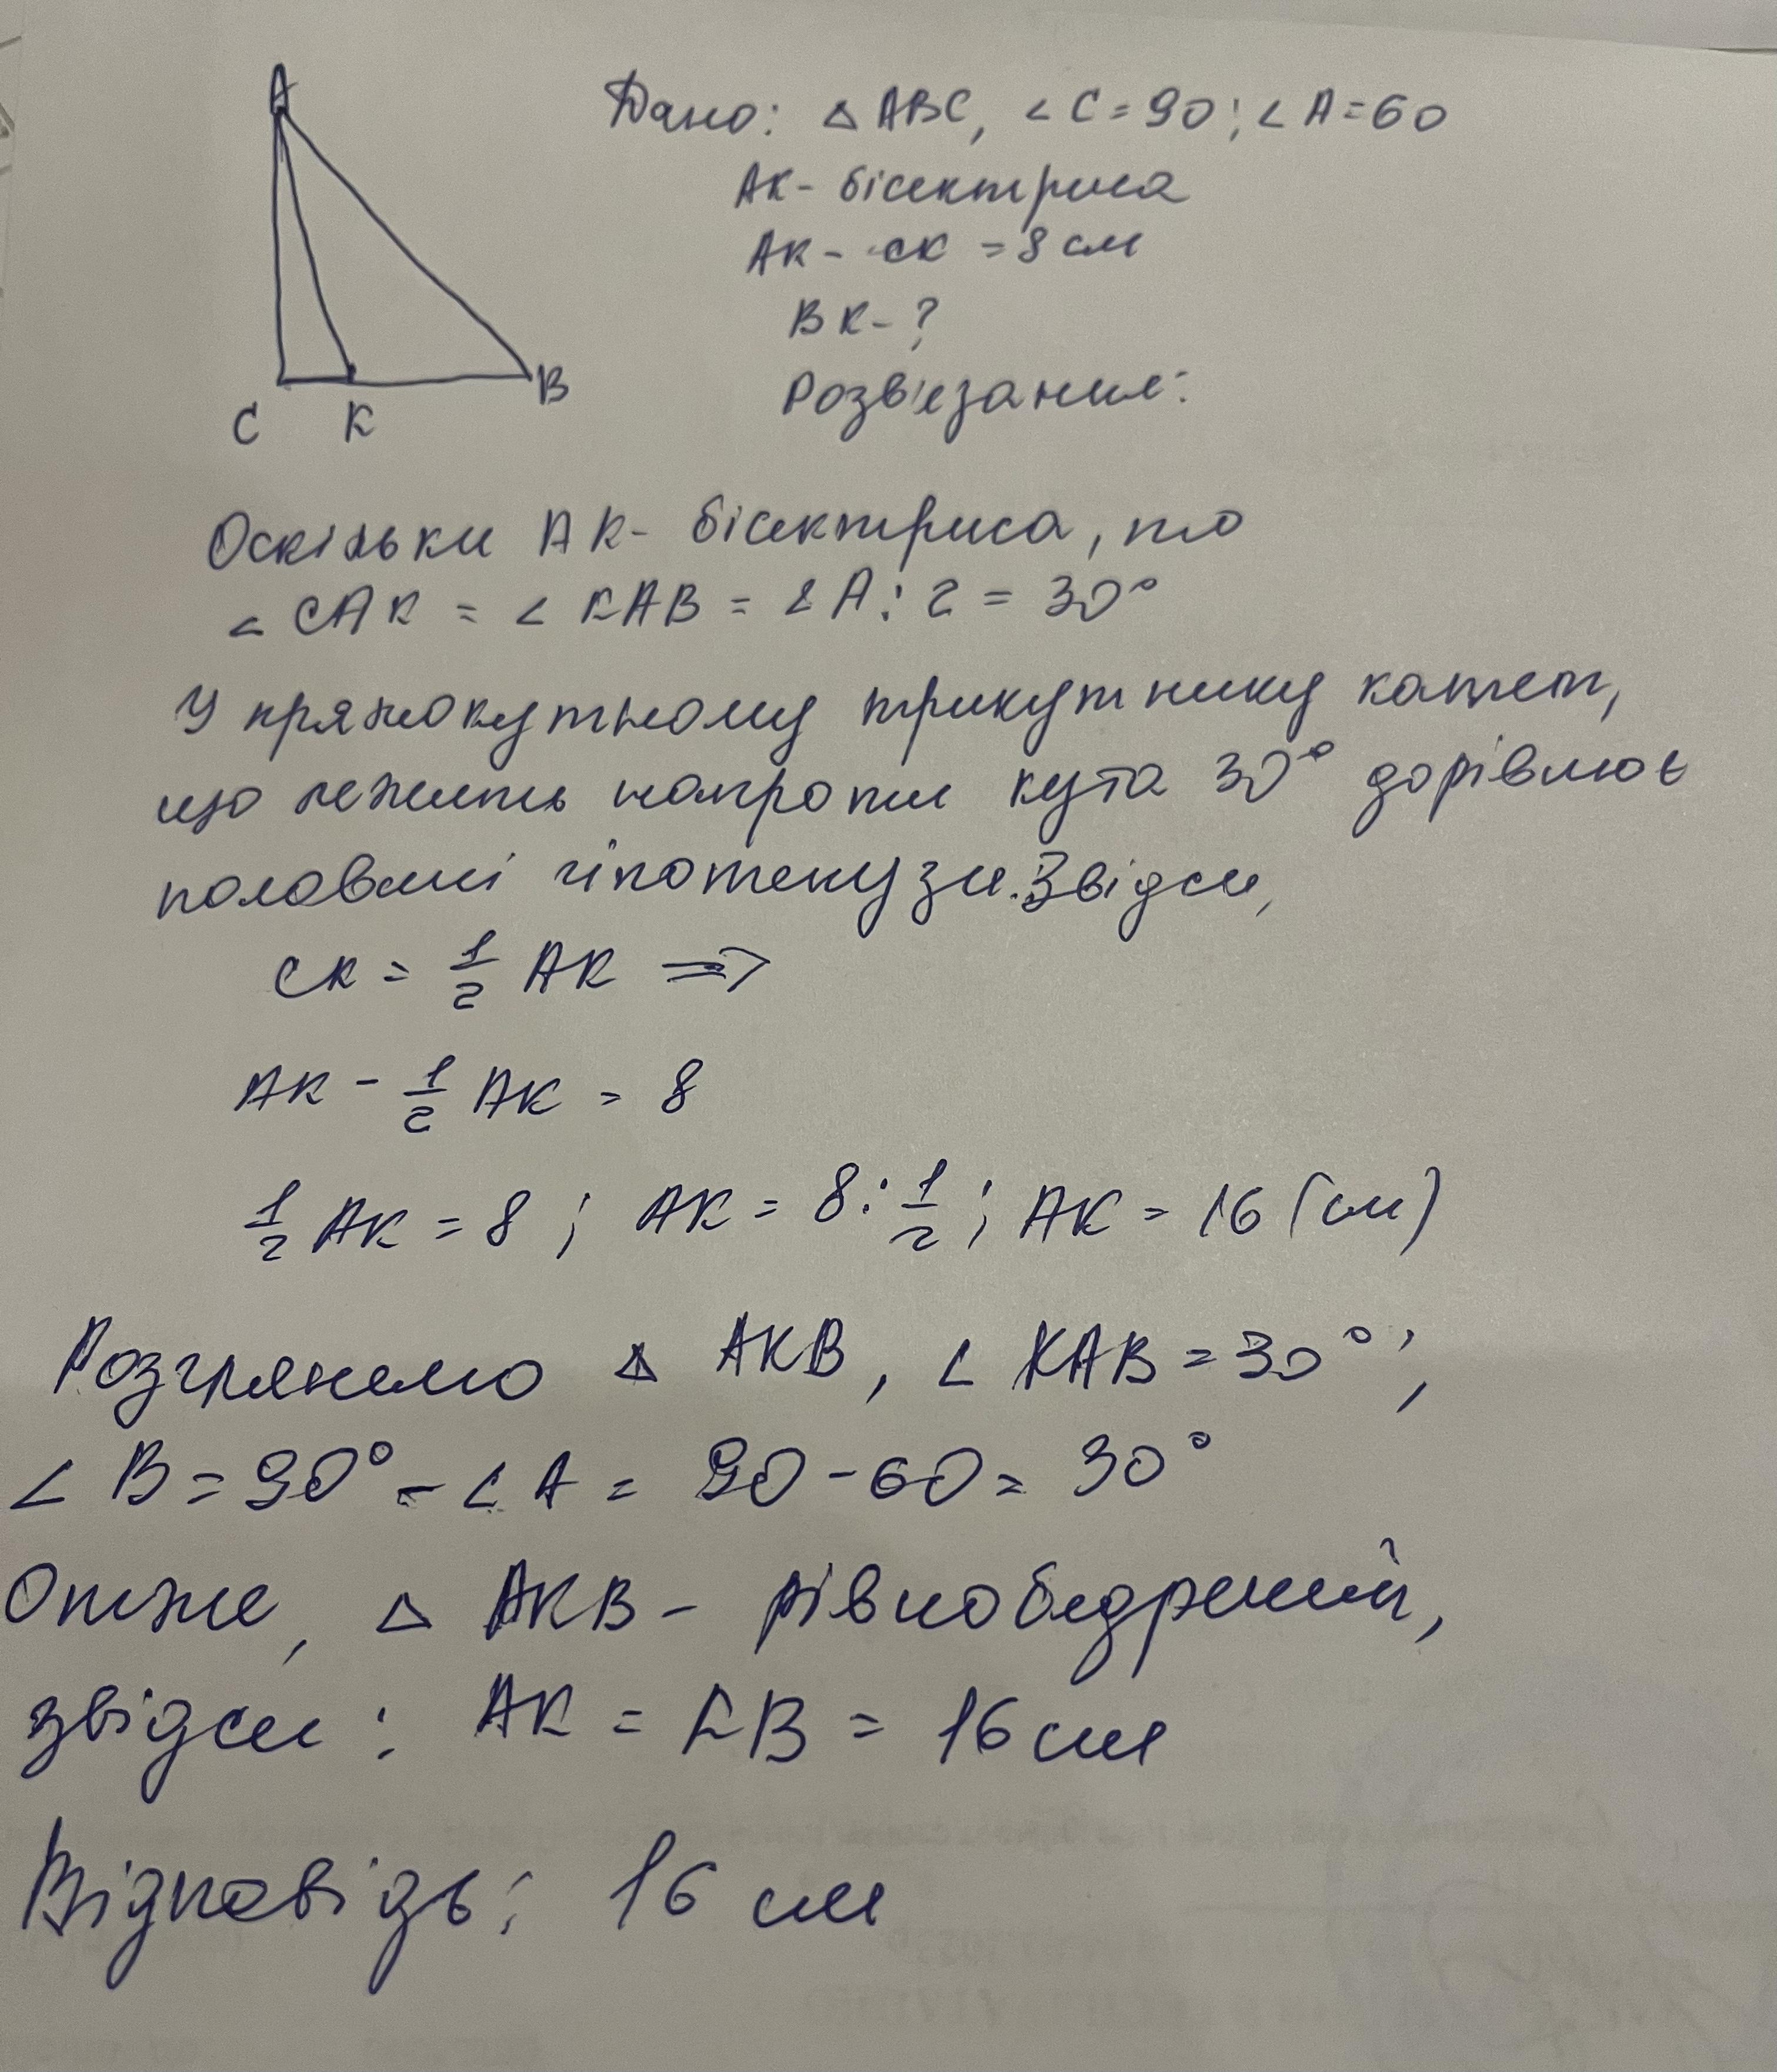 A
C K B
Дано: △ ABC, ∠ C = 90; ∠ A = 60
AK - бісектриса
AK - CK = 8 см
BK - ?
Розв'язання:
Оскільки AK - бісектриса, то
∠ CAK = ∠ KAB = ∠ A : 2 = 30°
У прямокутному трикутнику катет,
що лежить напроти кута 30° дорівлює
половині гіпотенузи. Звідси,
CK = 1/2 AK =>
AK - 1/2 AK = 8
1/2 AK = 8 ; AK = 8 : 1/2 ; AK = 16 (см)
Розглянемо △ AKB, ∠ KAB = 30° ;
∠ B = 90° - ∠ A = 90 - 60 = 30°
Отже, △ AKB - рівнобедрений,
звідси : AK = KB = 16 см
Відповідь : 16 см